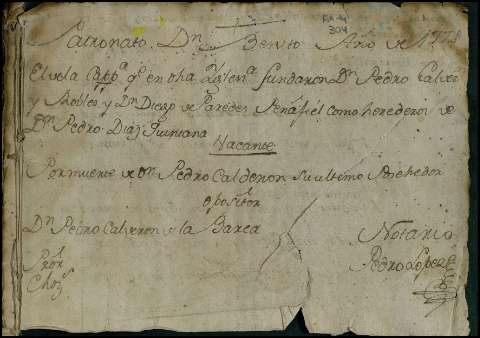 Patronato Dn Benito Año de 177
El de la Capp.a q.e en dha Ygle.a fundaron Dn Pedro Calde
y Robles, y Dn Diego de Paredes Penafiel como herederos de
Dn Pedro Diaz Quintana
Vacante
Por muerte de Dn Pedro Calderon su ultimo Posehedor
opositor
Dn Pedro Calderon de la Barca
Notario
Pedro Lopez
Pror